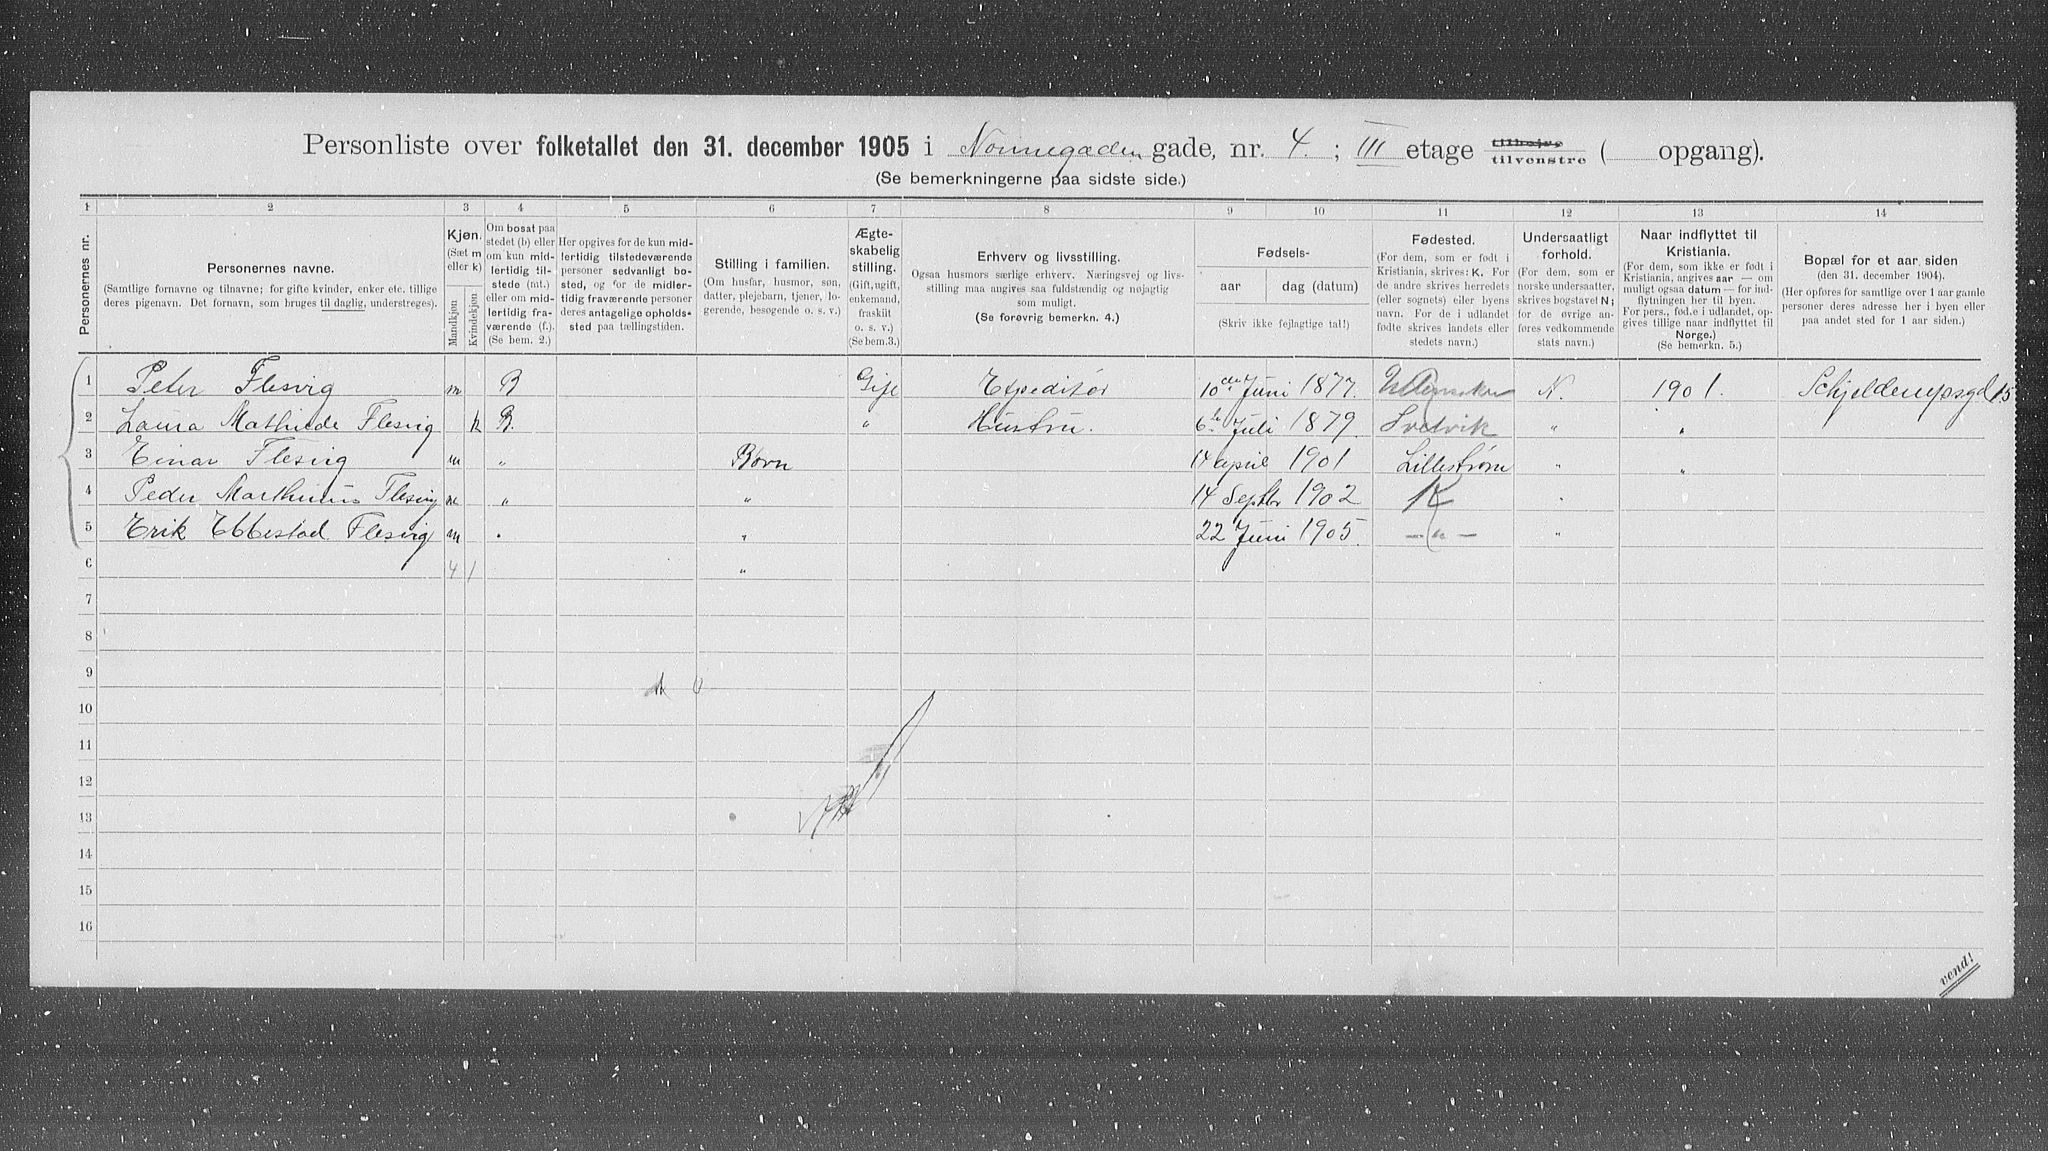 Personliste over folketallet den 31. december 1905 i Nonnegaden gade, nr. 4. ; III etage tilhøjre tilvenstre ( opgang).
(Se bemerkningerne paa sidste side.)
1 2 3 4 5 6 7 8 9 10 11 12 13 14
Personernes nr.
Personernes navne.
(Samtlige fornavne og tilnavne; for gifte kvinder, enker etc. tillige deres pigenavn. Det fornavn, som bruges til daglig, understreges).
Kjøn.
(Sæt m eller k)
Mandkjøn Kvindekjøn
Om bosat paa stedet (b) eller om kun midlertidig tilstede (mt.) eller om midlertidig fraværende (f.). (Se bem. 2.)
Her opgives for de kun midlertidig tilstedeværende personer sedvanligt bosted, og for de midlertidig fraværende personer deres antagelige opholdssted paa tællingstiden.
Stilling i familien.
(Om husfar, husmor, søn, datter, plejebarn, tjener, logerende, besøgende o. s. v.)
Ægteskabelig stilling.
(Gift, ugift, enkemand, fraskilt o. s. v.)
(Se bem. 3.)
Erhverv og livsstilling.
Ogsaa husmors særlige erhverv. Næringsvej og livsstilling maa angives saa fuldstændig og nøjagtig som muligt.
(Se forøvrig bemerkn. 4.)
Fødsels-
aar dag (datum)
(Skriv ikke fejlagtige tal!)
Fødested.
(For dem, som er født i Kristiania, skrives: K. For de andre skrives herredets (eller sognets) eller byens navn. For de i udlandet fødte skrives landets eller stedets navn.)
Undersaatligt forhold.
(For dem, som er norske undersaatter, skrives bogstavet N; for de øvrige anføres vedkommende stats navn.)
Naar indflyttet til Kristiania.
(For dem, som ikke er født i Kristiania, angives aar — om muligt ogsaa datum — for indflytningen her til byen. For pers., fød.e i udlandet, opgives tillige naar indflyttet til Norge.)
(Se bemerkn. 5.)
Bopæl for et aar siden
(den 31. december 1904).
(Her opføres for samtlige over 1 aar gamle personer deres adresse her i byen eller paa andet sted for 1 aar siden.)
1 Peter Flesvig m B Gift Expeditør 10de Juni 1877. N. 1901. Schjelderupsgd 15
2 Laura Mathilde Flesvig k B. " Hustru. 6te Juli 1879. Svelvik " "
3 Einar Flesvig m " Børn 14 april 1901 Lillestrøm " "
4 Peder Marthinius Flesvig m " " 14 Septbr 1902 K "
5 Erik Ebbestad Flesvig m " " 22 Juni 1905. — " — "
6 4 1 "
7
8
9
10
11
12
13
14
15
16
vend!